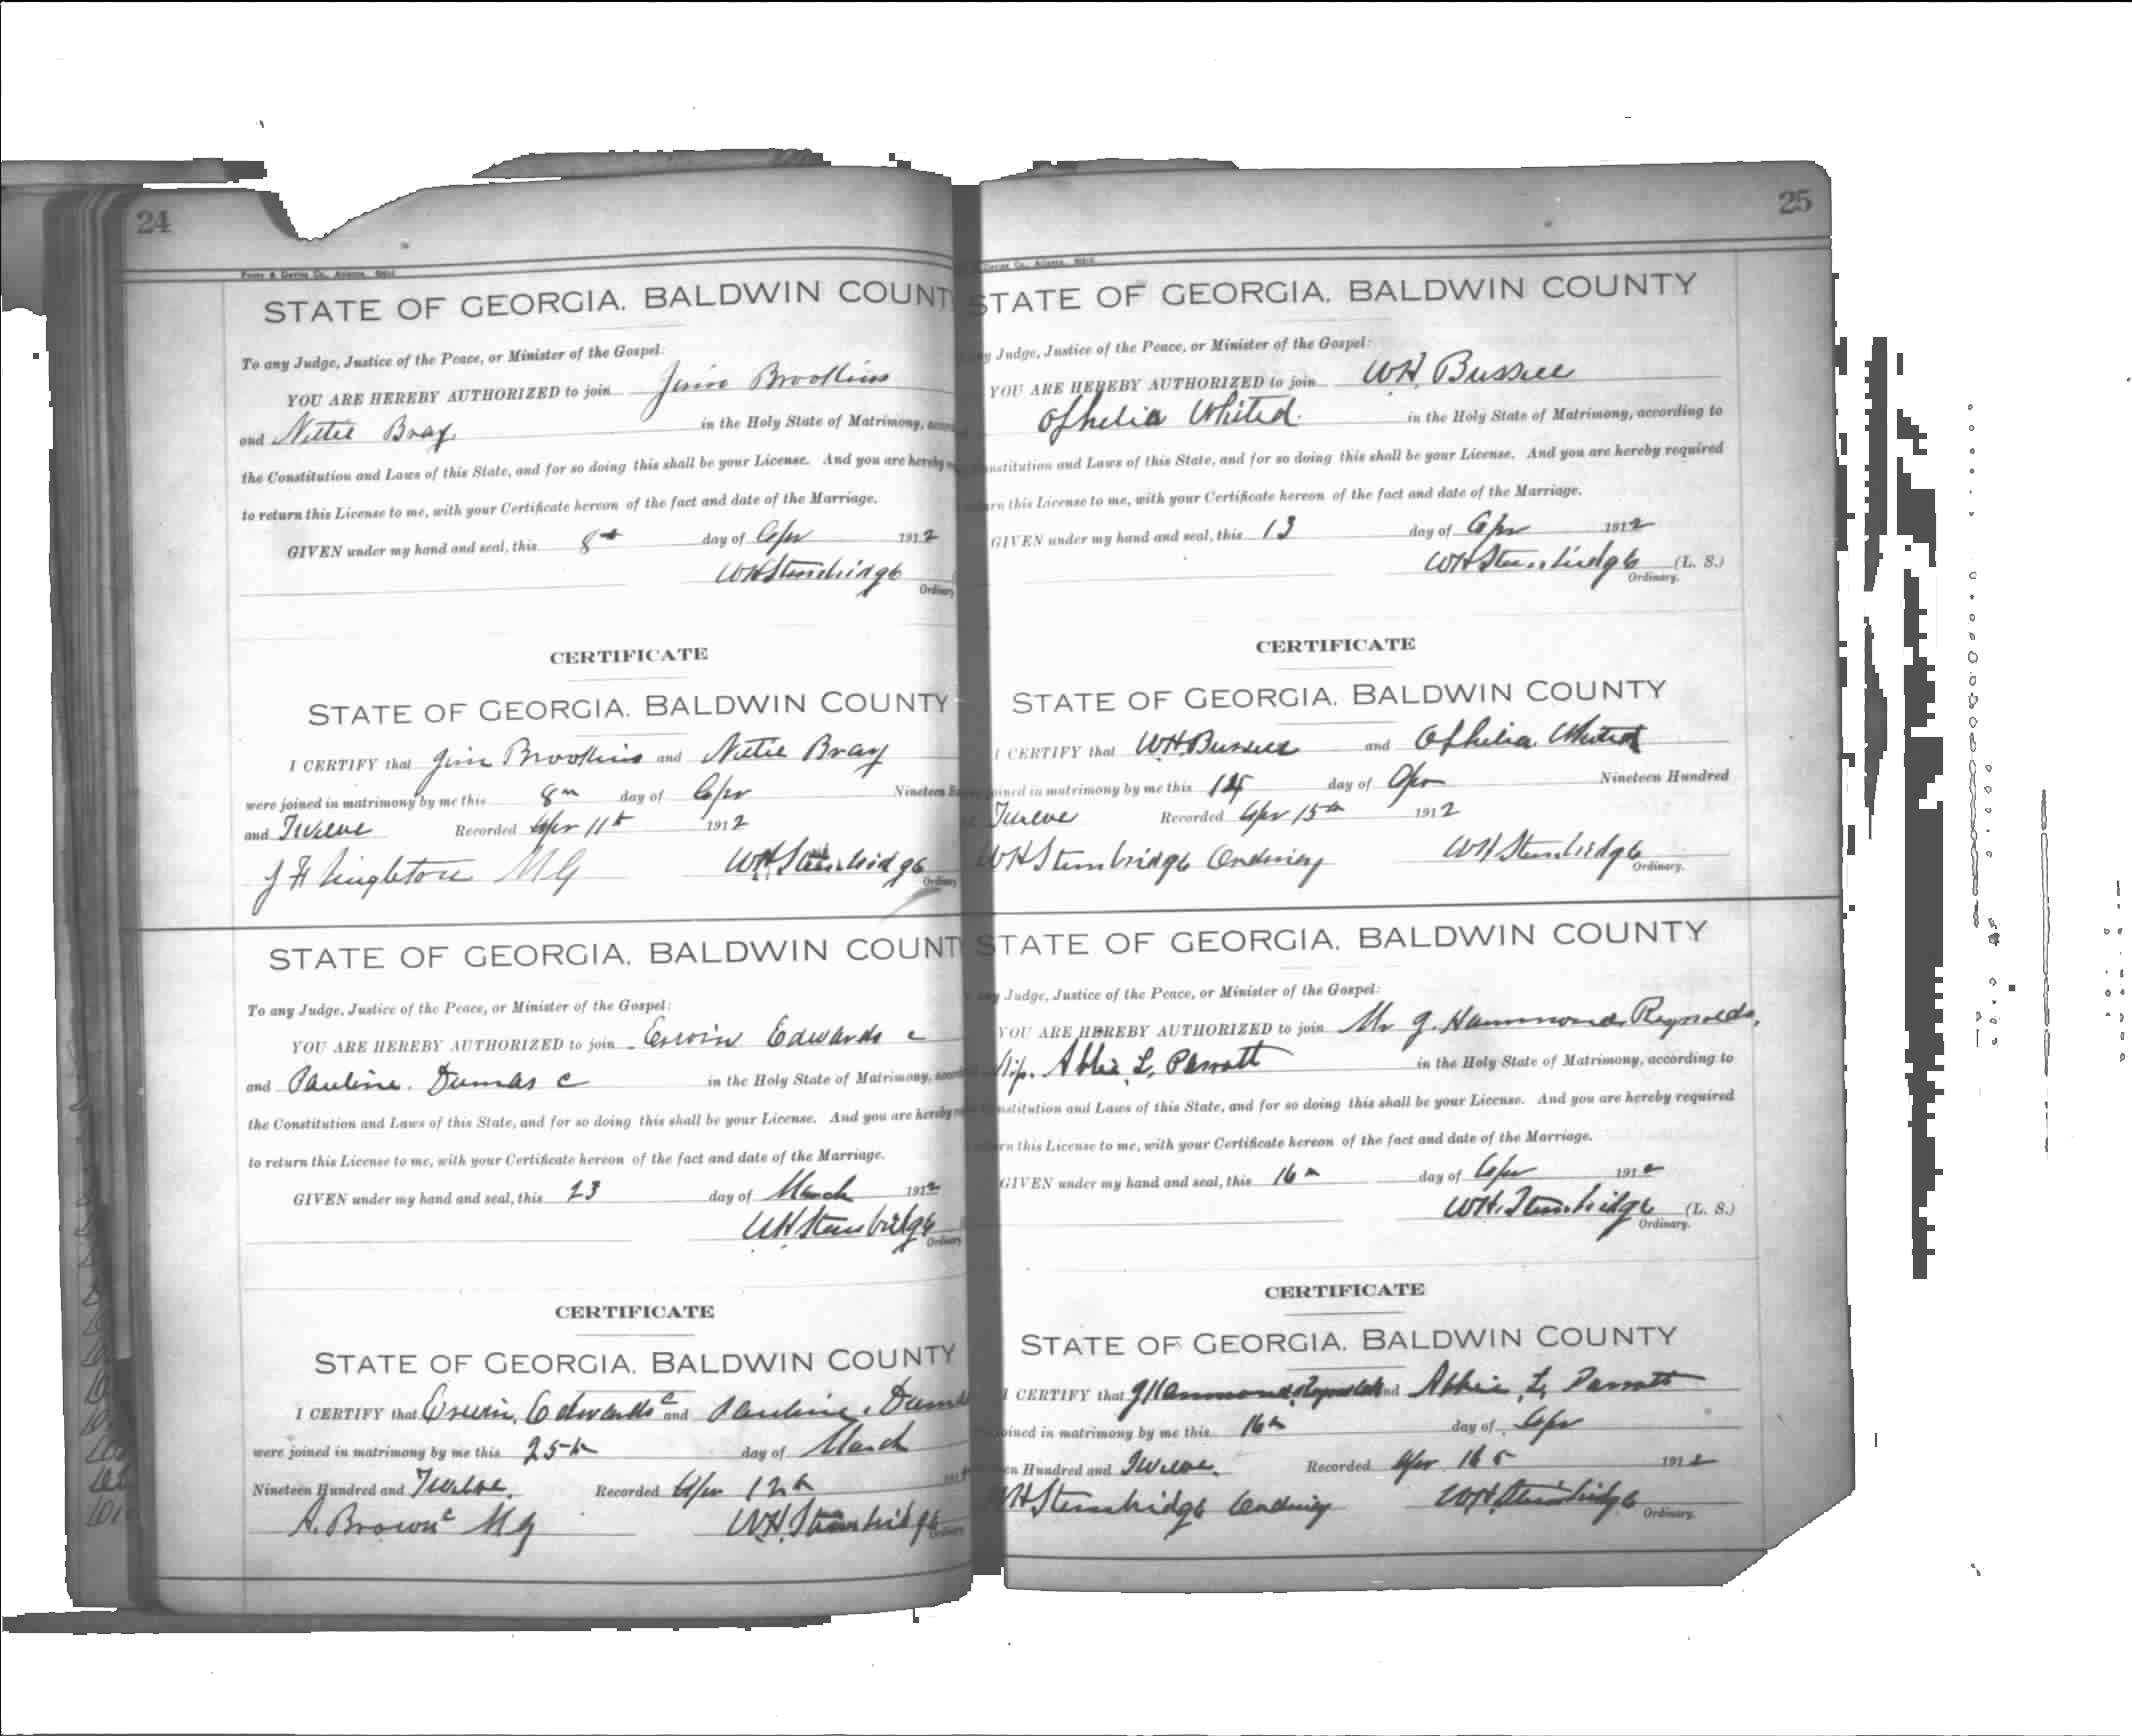 24
Foote & Davies Co., Atlanta
STATE OF GEORGIA. BALDWIN COUNT
To any Judge, Justice of the Peace, or Minister of the Gospel:
YOU ARE HEREBY AUTHORIZED to join Jim Brookins
and Nettie Bray in the Holy State of Matrimony,
the Constitution and Laws of this State, and for so doing this shall be your License. And you are hereby
to return this License to me, with your Certificate hereon of the fact and date of the Marriage.
GIVEN under my hand and seal, this 8th day of Apr 1912
WH Stembridge
Ordinary
CERTIFICATE
STATE OF GEORGIA. BALDWIN COUNTY
I CERTIFY that Jim Brookins and Nettie Bray
were joined in matrimony by me this 8th day of Apr Nineteen
and Twelve Recorded Apr 11th 1912
J H Singleton MG WH Stembridge
Ordinary
STATE OF GEORGIA. BALDWIN COUNT
To any Judge, Justice of the Peace, or Minister of the Gospel:
YOU ARE HEREBY AUTHORIZED to join Erwin Edwards c
and Pauline Dumas c in the Holy State of Matrimony,
the Constitution and Laws of this State, and for so doing this shall be your License. And you are hereby
to return this License to me, with your Certificate hereon of the fact and date of the Marriage.
GIVEN under my hand and seal, this 23 day of March 1912
WH Stembridge
Ordinary
CERTIFICATE
STATE OF GEORGIA. BALDWIN COUNTY
I CERTIFY that Erwin Edwards c and Pauline Dum
were joined in matrimony by me this 25th day of March
Nineteen Hundred and Twelve. Recorded Apr 12th 191
A. Brown c MG WH Stembridge
Ordinary
25
Davies Co., Atlanta
STATE OF GEORGIA. BALDWIN COUNTY
y Judge, Justice of the Peace, or Minister of the Gospel:
YOU ARE HEREBY AUTHORIZED to join WH Bussell
Ophelia Whited in the Holy State of Matrimony, according to
nstitution and Laws of this State, and for so doing this shall be your License. And you are hereby required
urn this License to me, with your Certificate hereon of the fact and date of the Marriage.
GIVEN under my hand and seal, this 13 day of Apr 1912
WH Stembridge (L. S.)
Ordinary.
CERTIFICATE
STATE OF GEORGIA. BALDWIN COUNTY
I CERTIFY that WH Bussell and Ophelia Whited
joined in matrimony by me this day of Apr Nineteen Hundred
Twelve Recorded Apr 15th 1912
WH Stembridge Ordinary WH Stembridge
Ordinary.
STATE OF GEORGIA. BALDWIN COUNTY
any Judge, Justice of the Peace, or Minister of the Gospel:
YOU ARE HEREBY AUTHORIZED to join Mr J. Hammond Reynolds,
Abbie L. Parrott in the Holy State of Matrimony, according to
nstitution and Laws of this State, and for so doing this shall be your License. And you are hereby required
urn this License to me, with your Certificate hereon of the fact and date of the Marriage.
GIVEN under my hand and seal, this 16th day of Apr 1912
WH. Stembridge (L. S.)
Ordinary.
CERTIFICATE
STATE OF GEORGIA. BALDWIN COUNTY
I CERTIFY that J Hammond Reynolds and Abbie L. Parrott
joined in matrimony by me this 16th day of Apr
en Hundred and Twelve. Recorded Apr 16 1912
WH Stembridge Ordinary WH Stembridge
Ordinary.